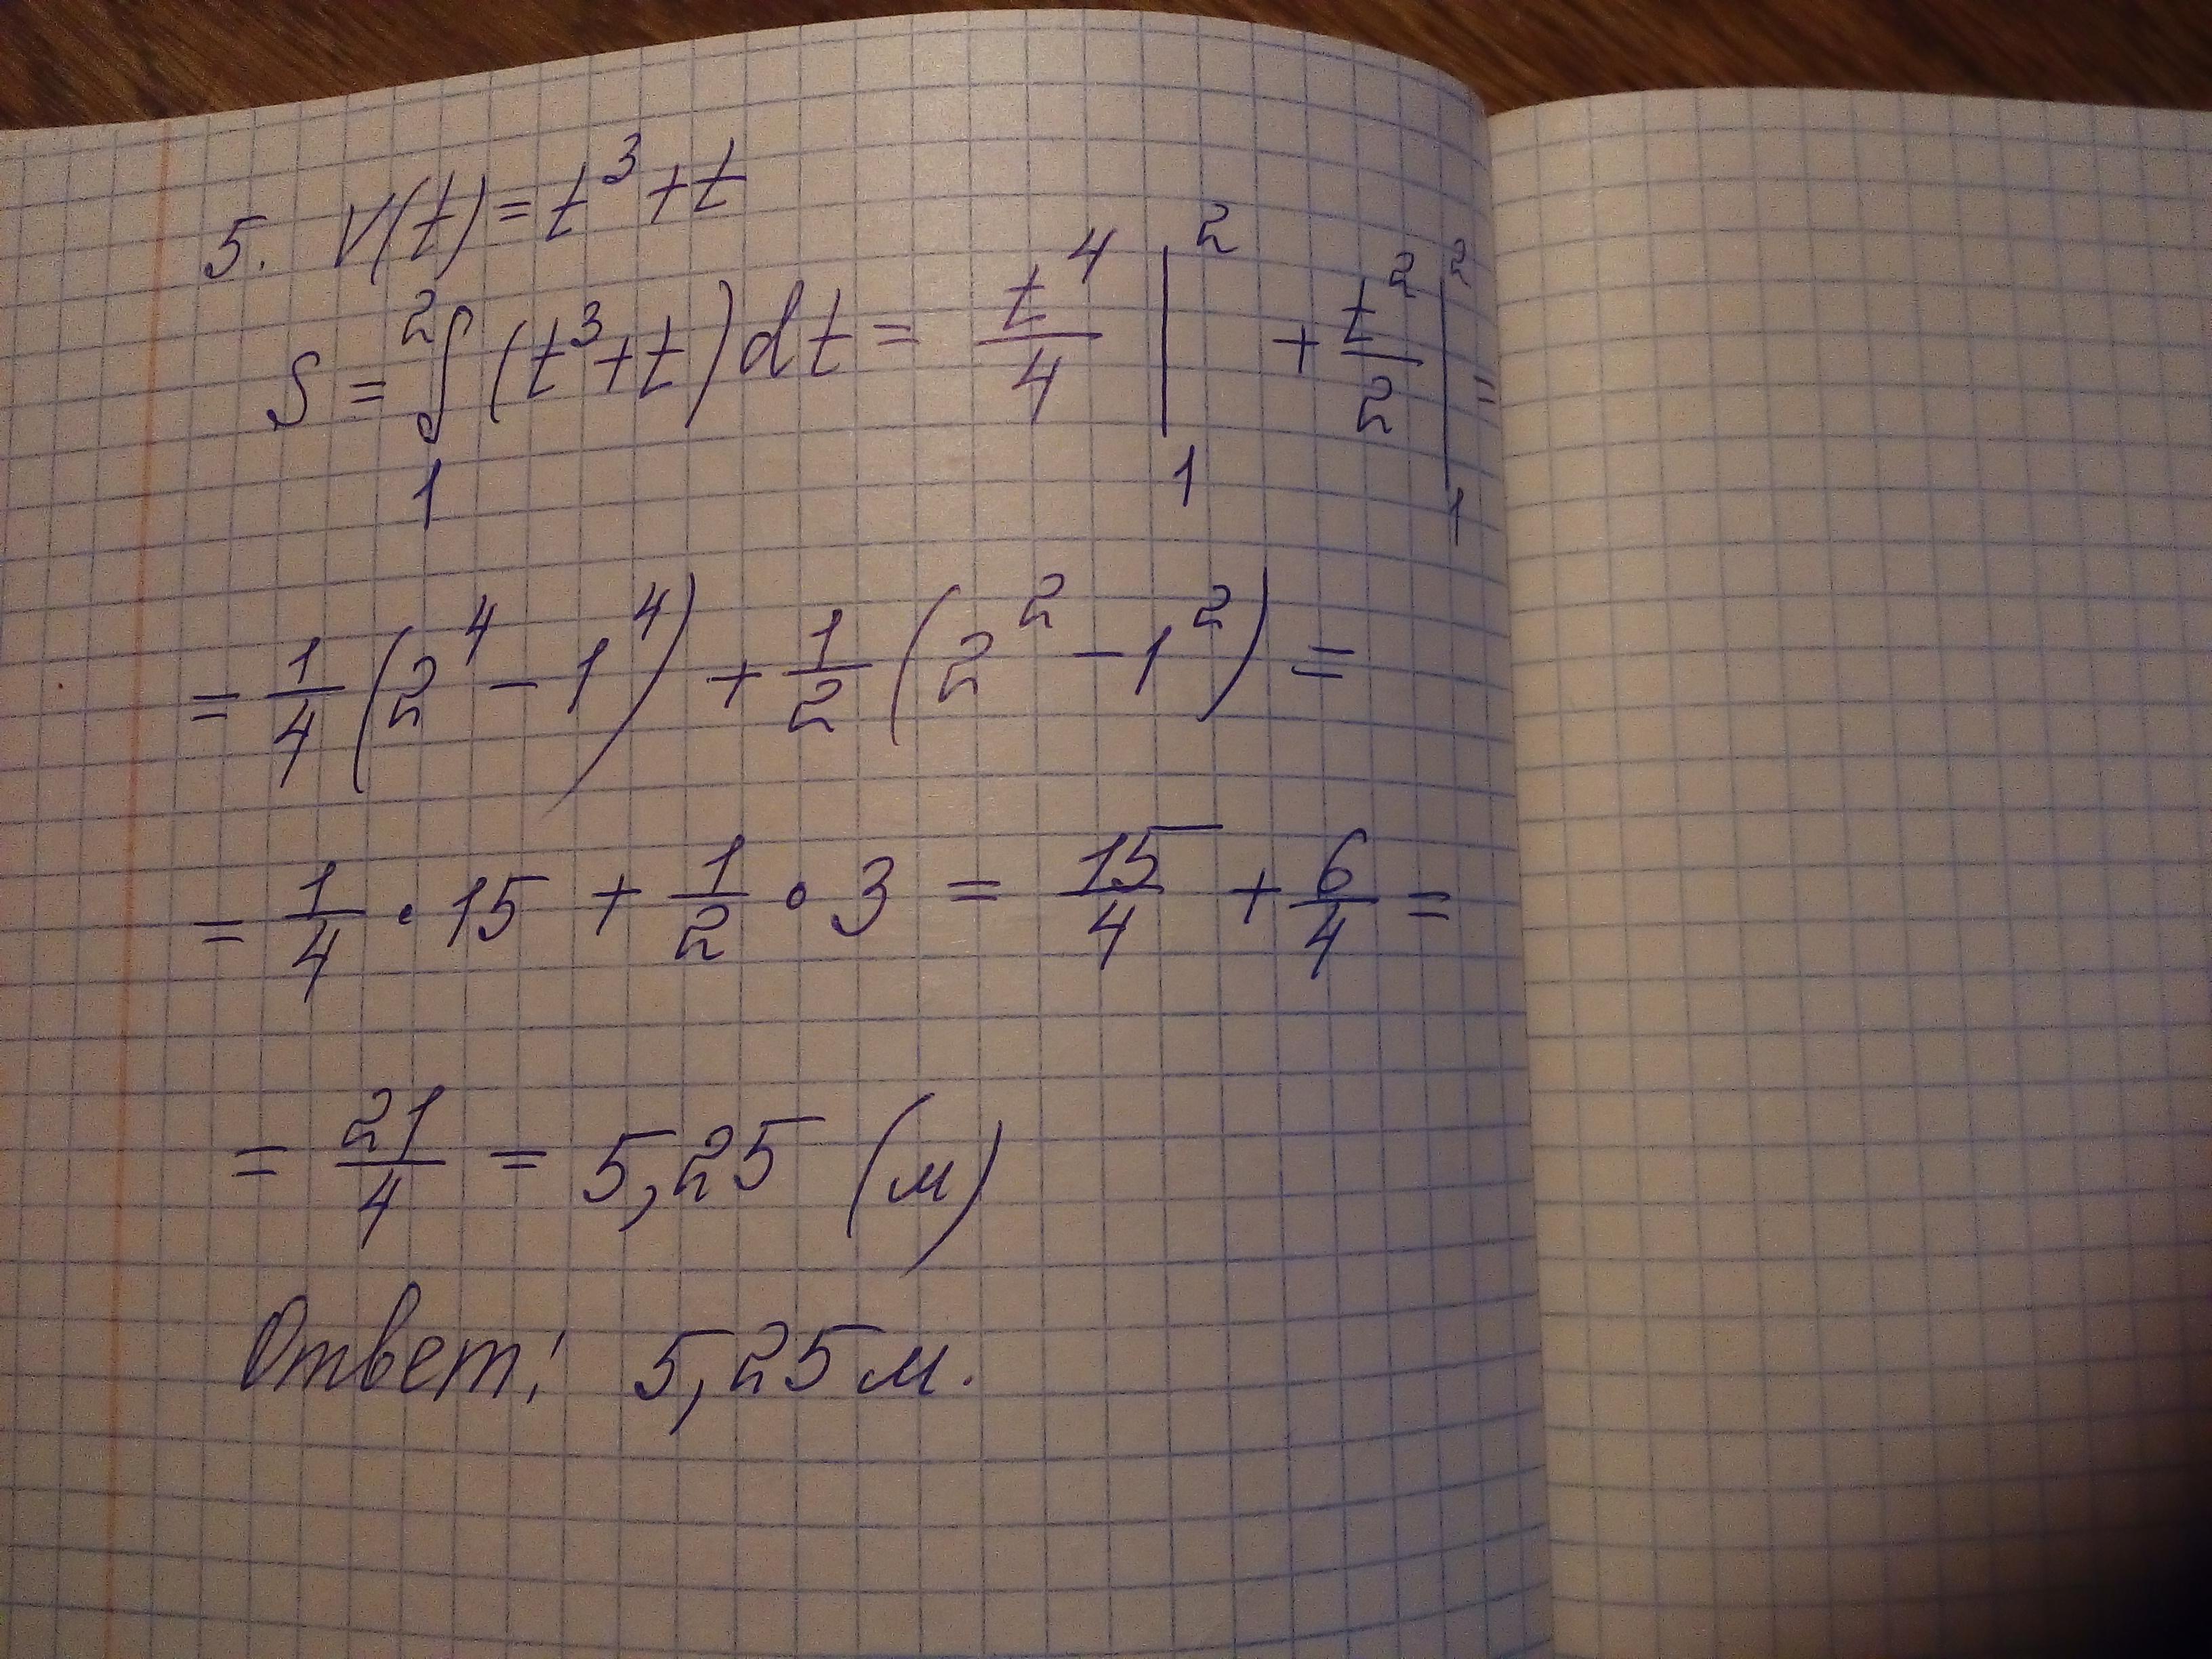 5. V(t) = t³ + t
S = ²∫₁ (t³ + t) dt = t⁴/4 |²₁ + t²/2 |²₁ =
= 1/4 (2⁴ - 1⁴) + 1/2 (2² - 1²) =
= 1/4 · 15 + 1/2 · 3 = 15/4 + 6/4 =
= 21/4 = 5,25 (м)
Ответ: 5,25 м.